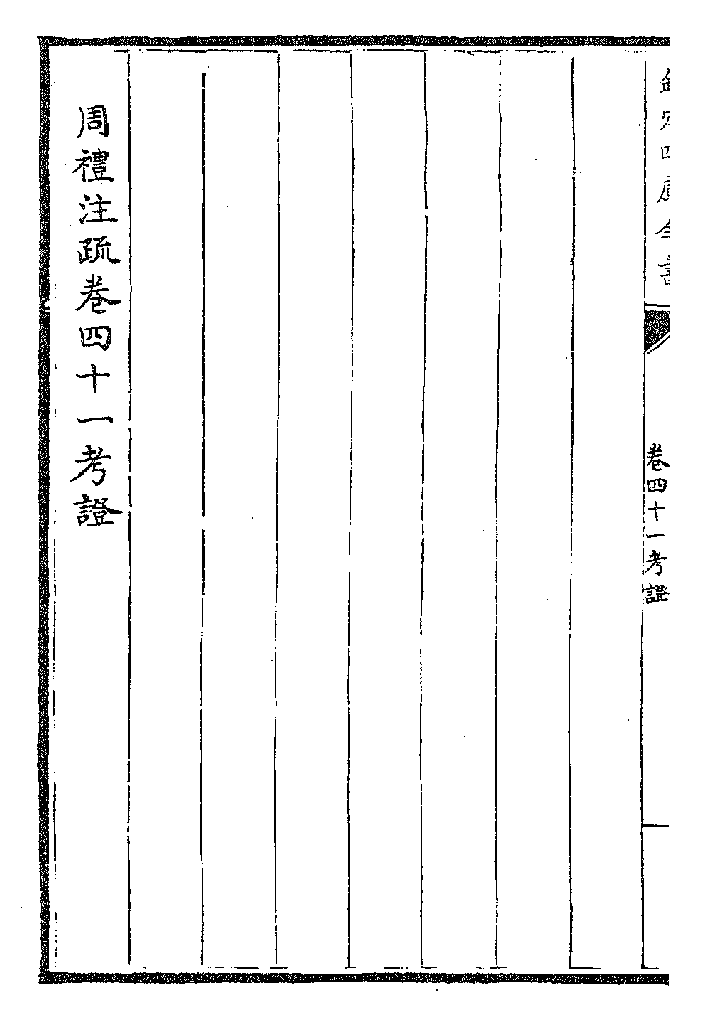 欽定四庫全書
卷四十一考證
周禮注疏卷四十一考證